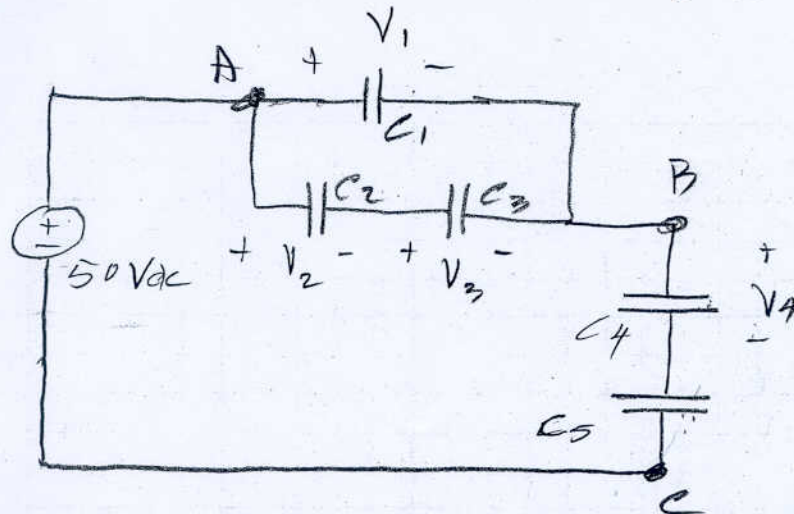 V1
A + -
C1
B
C2 C3
+ -
50Vdc
+ V2 - + V3 -
+
V4
-
C4
C5
C